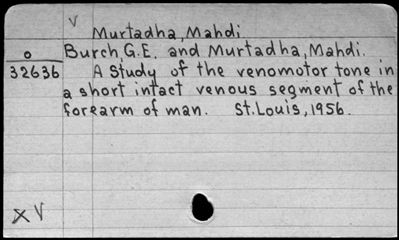 V
Murtadha, Mahdi
o
Burch, G.E. and Murtadha, Mahdi.
32636
A study of the venomotor tone in
a short intact venous segment of the
forearm of man. St. Louis, 1956.
X V